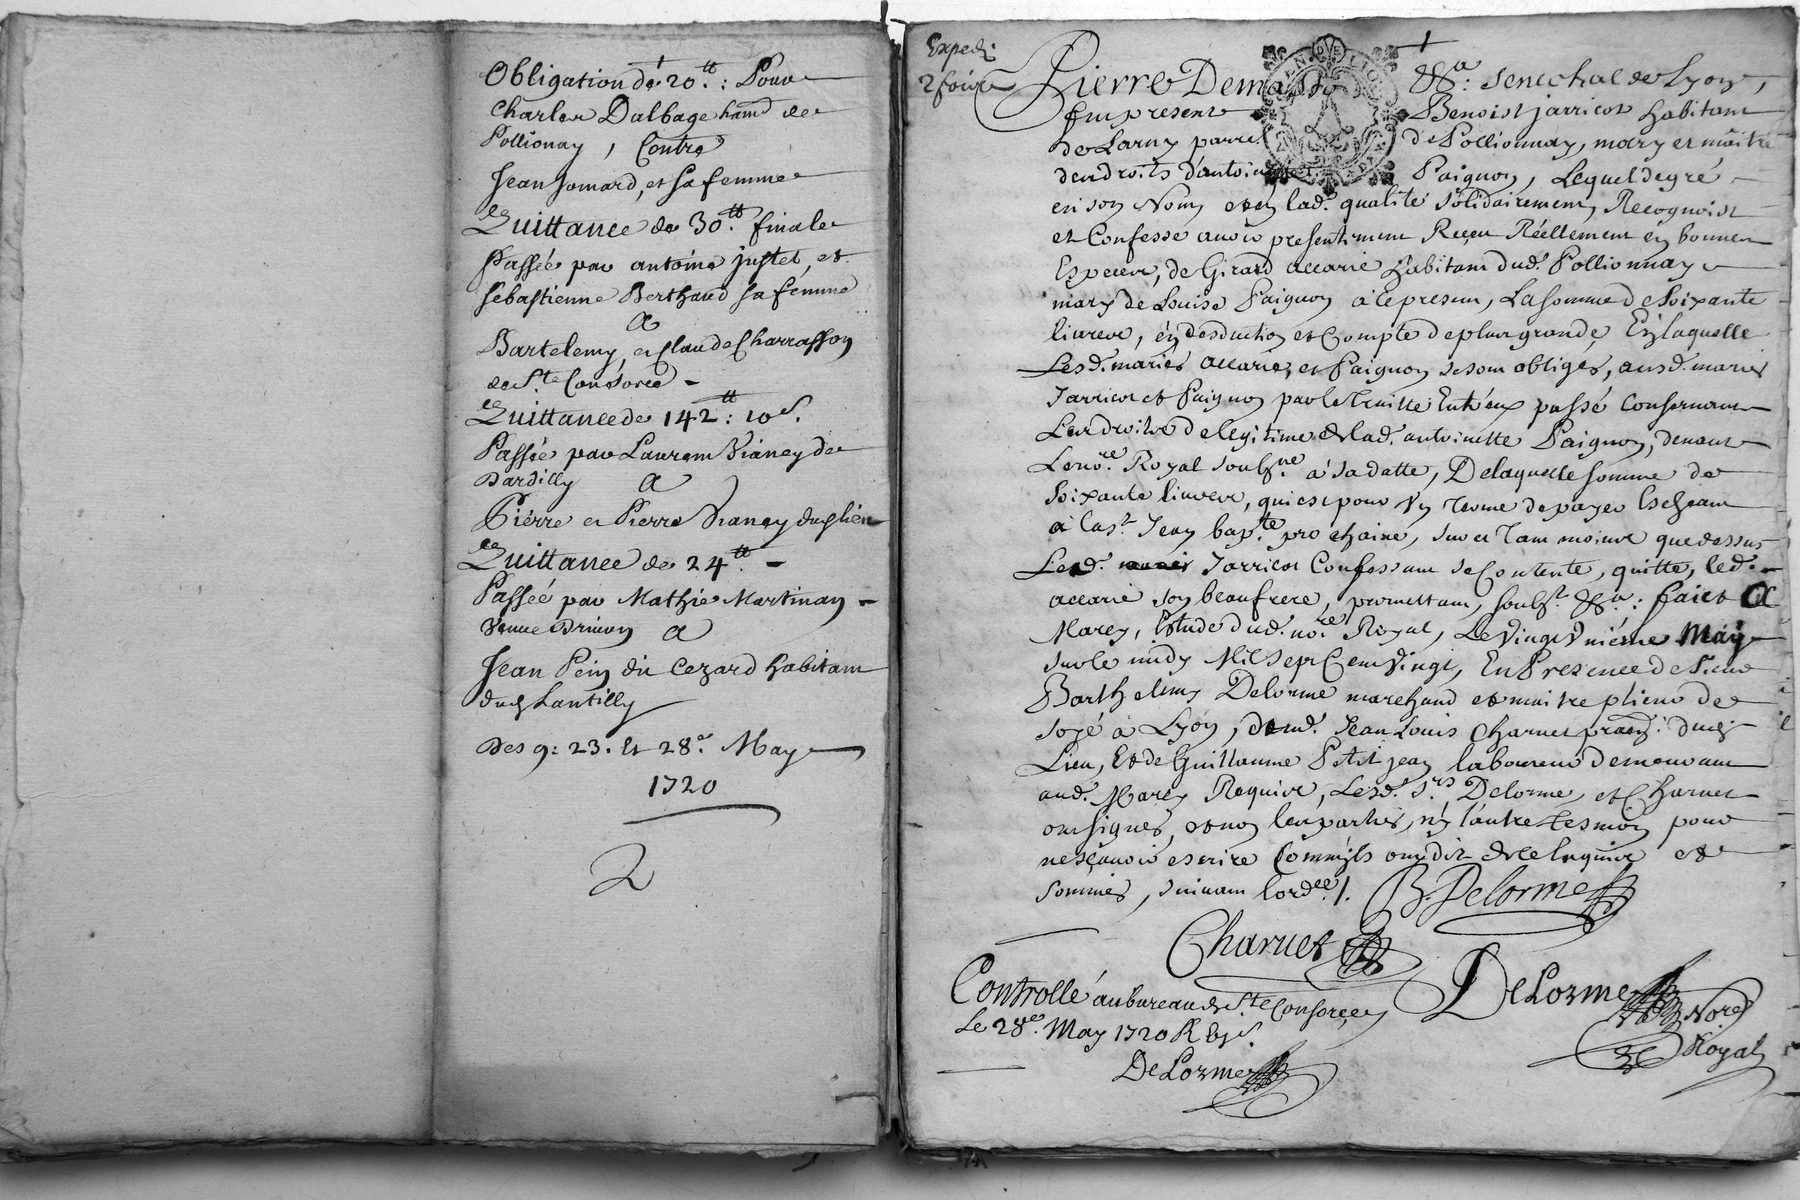 Obligation de 20tt: Pour
Charles Dalbage hand de
Pollionay, Contre
Jean Jomard, et sa femme
Quittance de 30tt. finale
Passée par antoine justet, et
Sebastienne Berthaud sa femme
A
Bartelemy, et Claude Charrasson
de Ste Consorce -
Quittance de 142tt: 10s.
Passée par Laurem Vianey de
Dardilly A
Piérre et Pierre Vianey dud lieu
Quittance de 24tt. -
Passée par Mathie Martinay -
veuve Brieuy A
Jean Peiy dit Cezard habitam
dud Lantilly
Des 9: 23. Et 28e. May
1720
2
Expedi
2 fois
Pierre Demasso &a: Senechal de Lyon,
fut present Benoist jarricot habitant
de Larny parre de Pollionnay, mary et maitre
des droits d'antoinette Paignoy, Lequel de gré
en son Nom, et en lad. qualité solidairement, Recognoist
et Confesse avoir presentement Reçeu Réellement en bonnes
Especes, de Girard accarie habitam dud. Pollionnay
mary de Louise Paignoy à ce presem, La somme de soixante
livres, en desduction et Compte de plus grande, En laquelle
Lesd. mariés accarie, et Paignoy se som obligés, ausd. mariés
Jarricot et Paignoy par le Traitté Entr'eux passé Conçernam
Les droits de legitime de lad. antoinette Paignoy, devant
Le nore. Royal soubsne à sa datte, De laquelle somme de
soixante livres, qui est pour Un Terme de payer Escheam
à la st Jean bapte prochaine, sur et Tam moins que dessus
Led. Jarricot Confessam se Contente, quitte, led.
accarie son beaufrere, promettam, soubst. &a: faict A
Marcy, Estude dud. nore. Royal, Le vingt Unième May
sur le midy Mil sept Cem vingt, En Presence de sieur
Barthelemy Delorme marchand et maitre plieur de
soye à Lyon, dem. Jean Louis Charuet pratn. dud
Lieu, Et de Guillaume Petit jean laboureur demeuram
aud. Marcy Requis, Lesd. srs Delorme, et Charuet
om signés, et non les parties, ny l'autre tesmoin pour
ne sçavoir escrire Comm'ils om dit de ce Enquis et
sommés, suivam l'ordce /. B. Delorme
Charuet
Controllé au bureau de Ste Consorce DeLorme
Le 28e. May 1720 R 6s. Nore
DeLorme Royal